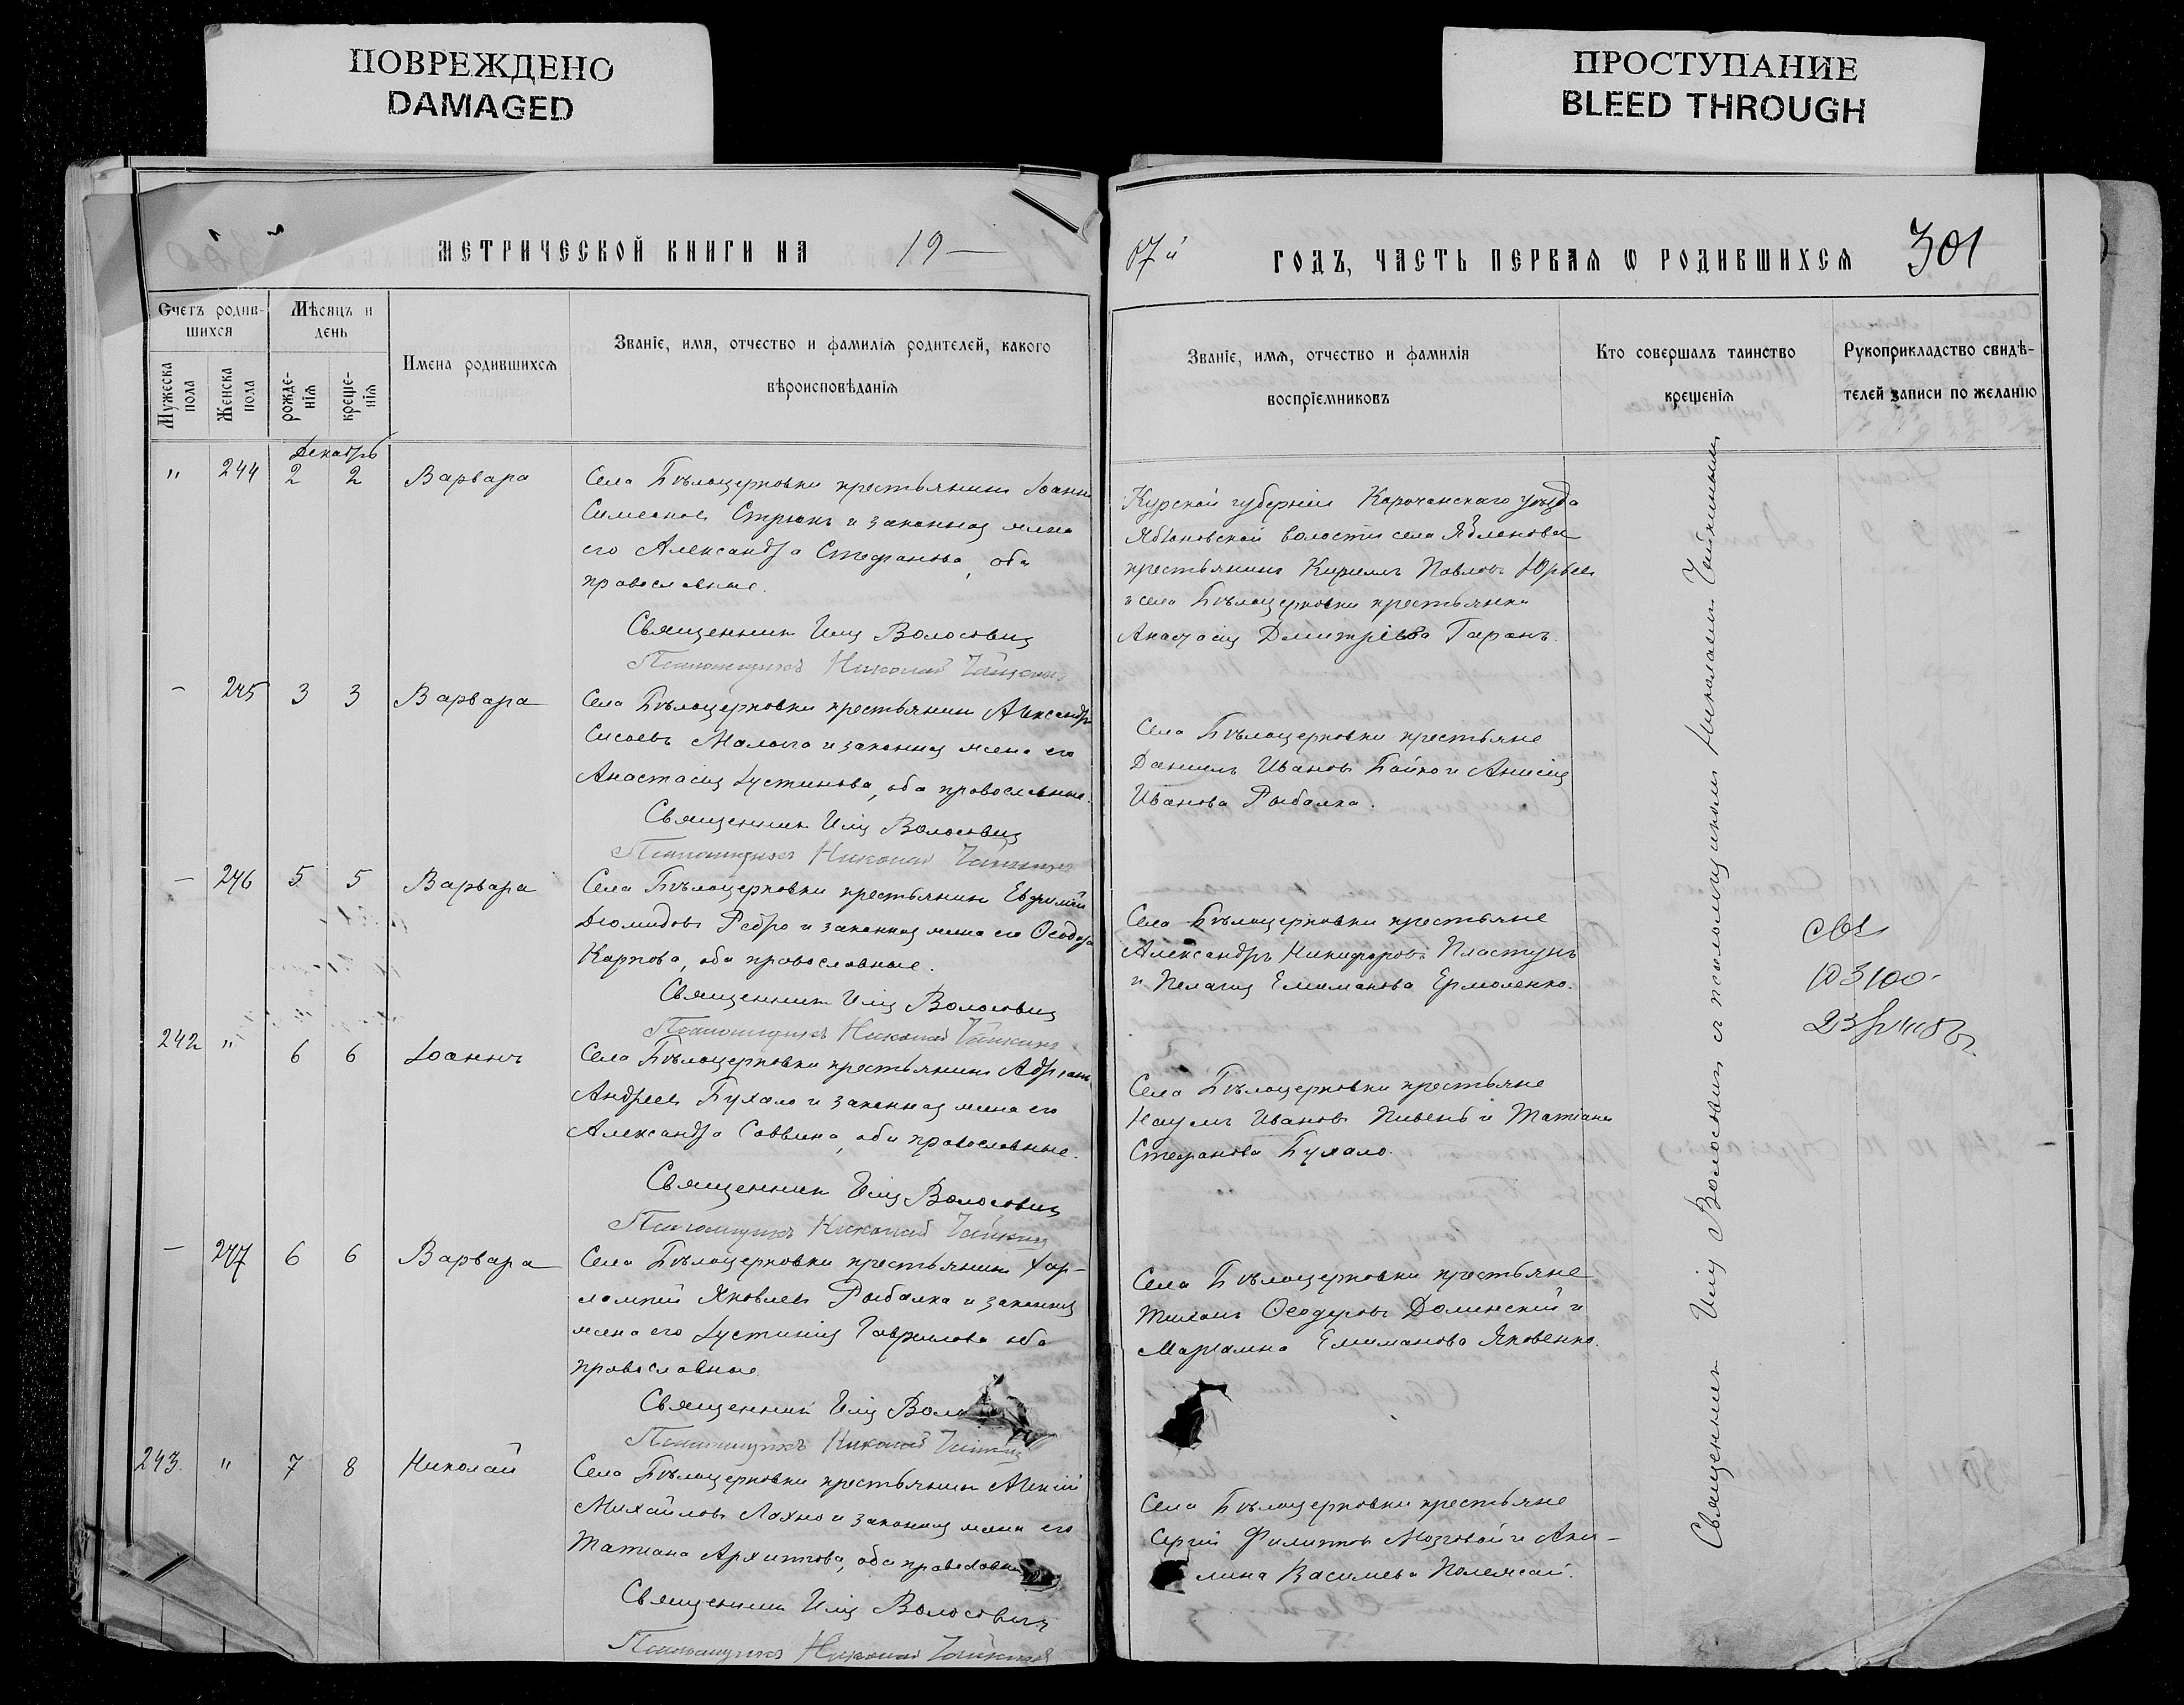 ПОВРЕЖДЕНО
DAMAGED
ПРОСТУПАНИЕ
BLEED THROUGH
МЕТРИЧЕСКОЙ КНИГИ НА 19—
Счетъ родив-
шихся
Мѣсяцъ и
день
Мужеска
пола
Женска
пола
рожде-
нія
креще-
нія
Имена родившихся
Званіе, имя, отчество и фамилія родителей, какого
вѣроисповѣданія
Декабрь
" 244 2 2 Варвара
Села Бѣлоцерковки крестьянинъ Іоаннъ
Симеоновъ Стрюкъ и законная жена
его Александра Стефанова, оба
православные.
Священник Илія Волосович
Псаломщикъ Николай Чайкинъ
— 245 3 3 Варвара
Села Бѣлоцерковки крестьянинъ Александръ
Сисоевъ Малого и законная жена его
Анастасія Іустинова, оба православные.
Священник Илія Волосович
Псаломщикъ Николай Чайкинъ
— 246 5 5 Варвара
Села Бѣлоцерковки крестьянинъ Евфимій
Діомидовъ Ребро и законная жена его Ѳеодора
Карпова, оба православные.
Священник Илія Волосович
Псаломщикъ Николай Чайкинъ
242 " 6 6 Іоаннъ
Села Бѣлоцерковки крестьянинъ Адріанъ
Андреевъ Бухало и законная жена его
Александра Саввина, оба православные.
Священник Илія Волосович
Псаломщикъ Николай Чайкинъ
— 247 6 6 Варвара
Села Бѣлоцерковки крестьянинъ Хар-
лампій Яковлевъ Рыбалка и законная
жена его Іустинія Гаврилова оба
православные
Священник Илія
Псаломщикъ Николай Чайкинъ
243. " 7 8 Николай
Села Бѣлоцерковки крестьянинъ Алексій
Михайловъ Лахно и законная жена его
Татіана Архиппова, оба
Священник Илія Волосович
Псаломщикъ Николай Чайкинъ
07й ГОДЪ, ЧАСТЬ ПЕРВАЯ Ѡ РОДИВШИХСЯ 301
Званіе, имя, отчество и фамилія
воспріемниковъ
Кто совершалъ таинство
крещенія
Рукоприкладство свидѣ-
телей записи по желанію
Курской губерніи Корочанскаго уѣзда
Яблоновской волости села Яблонова
крестьянинъ Кириллъ Павловъ Юрьевъ
и села Бѣлоцерковки крестьянка
Анастасія Димитріева Гаранъ.
Села Бѣлоцерковки крестьяне
Даніилъ Ивановъ Бойко и Анисія
Иванова Рыбалка.
Села Бѣлоцерковки крестьяне
Александръ Никифоровъ Пластунъ
и Пелагія Ермоленко.
Села Бѣлоцерковки крестьяне
Наумъ Ивановъ Пивень и Татіана
Стефанова Бухало.
Села Бѣлоцерковки крестьяне
Ѳеодоровъ Долинскій и
Маріамна Яковенко.
Села Бѣлоцерковки крестьяне
Сергій Филипповъ Мозговой и Аки-
лина Васильева
Священник Илія Волосович с псаломщиком Николаем Чайкиным